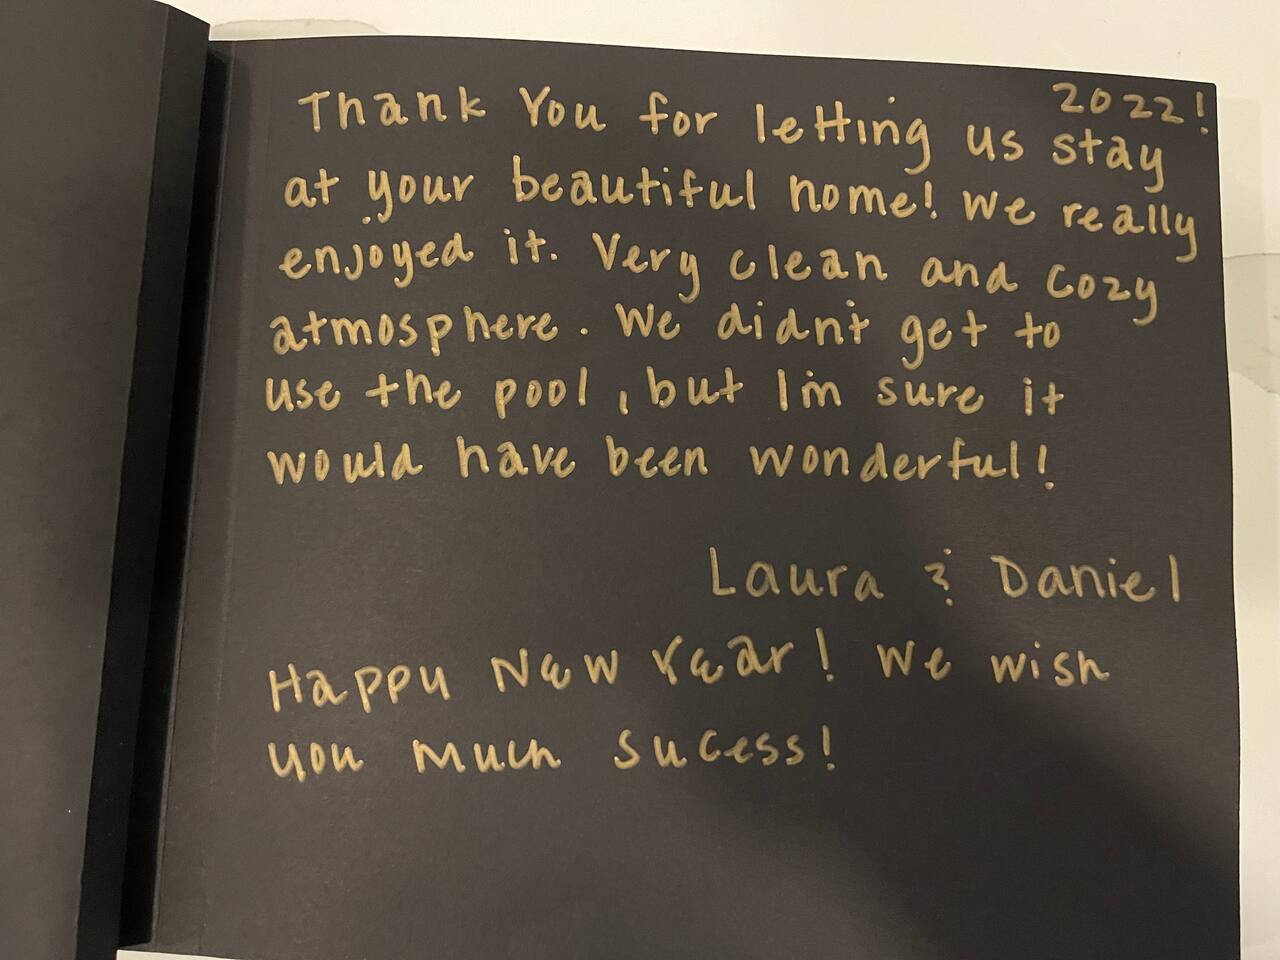 2022!
Thank You for letting us stay
at your beautiful home! We really
enjoyed it. Very clean and cozy
atmosphere. We didn't get to
use the pool, but I'm sure it
would have been wonderful!
Laura & Daniel
Happy New Year! We wish
you much sucess!